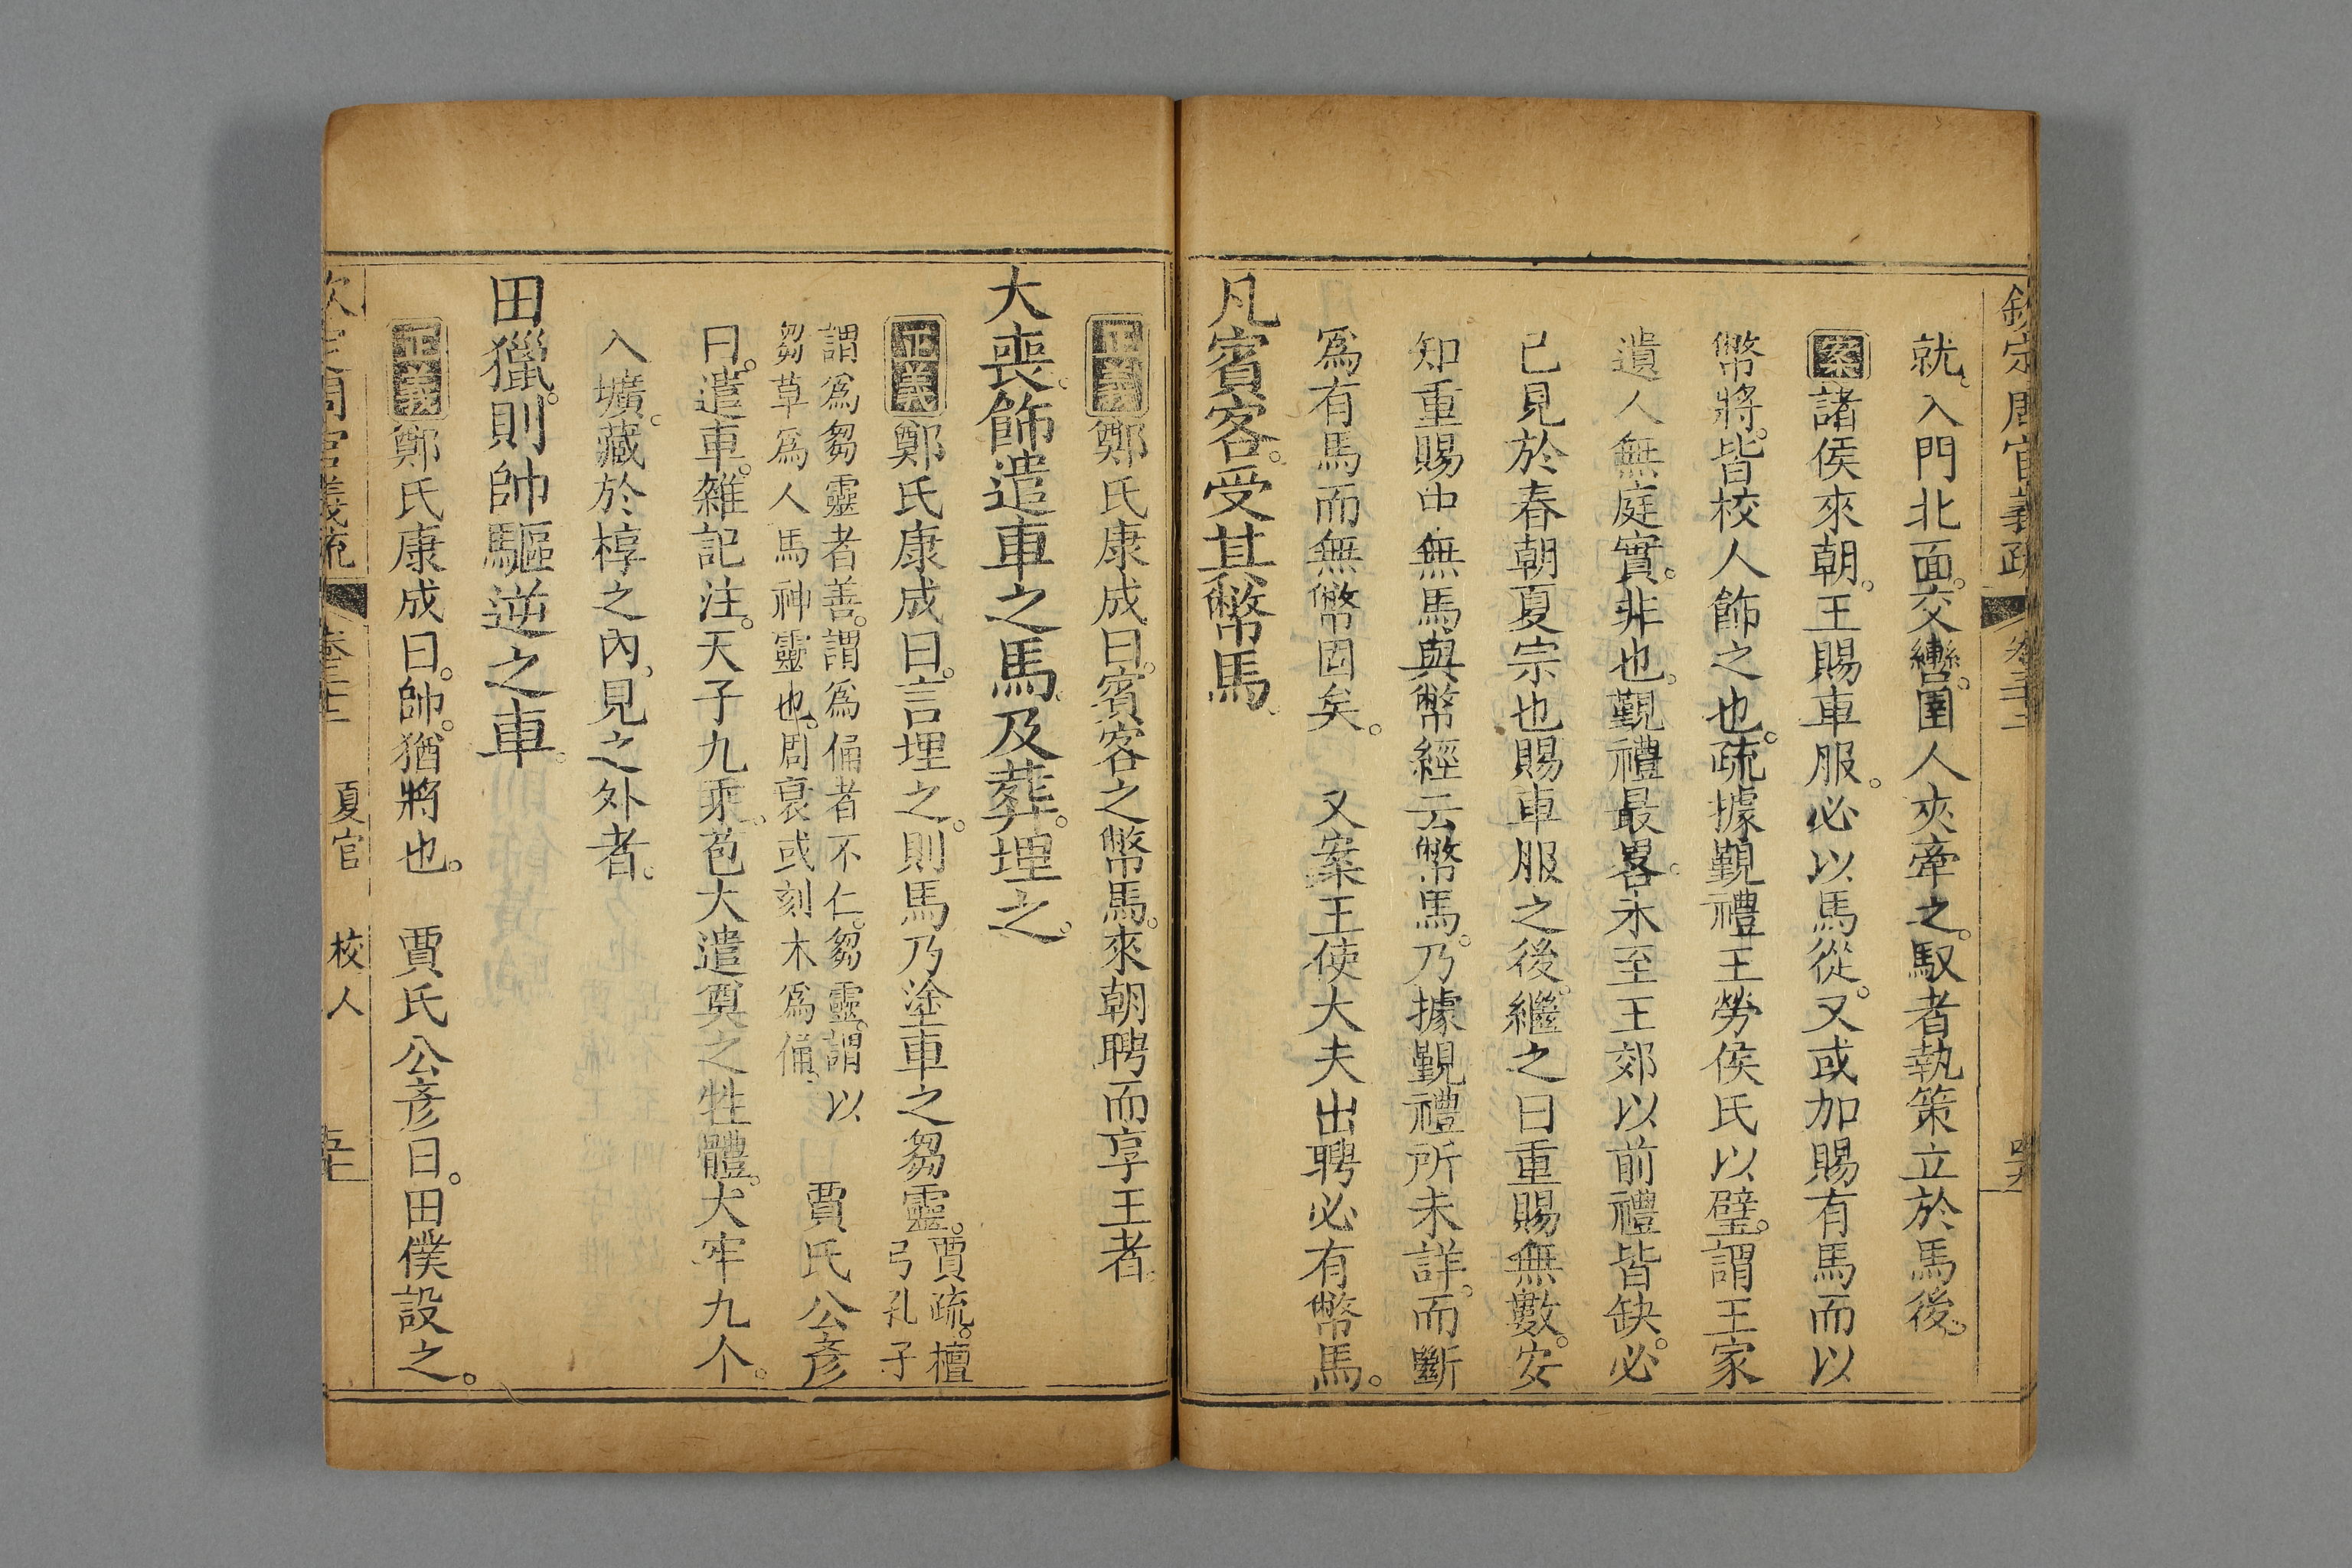 欽定周官義疏 卷三十二
就、入門北面。交轡。圉人夾牽之。馭者執策立於馬後。
案諸侯來朝。王賜車服。必以馬從。又或加賜有馬而以
幣將。皆校人飾之也。疏據覲禮王勞侯氏以璧。謂王家
遺人無庭實。非也。覲禮最畧。未至王郊以前禮皆缺。必
已見於春朝夏宗也賜車服之後。繼之曰重賜無數。安
知重賜中無馬與幣經云幣馬。乃據覲禮所未詳。而斷
爲有馬而無幣固矣。 又案王使大夫出聘必有幣馬。
凡賓客。受其幣馬。
正義鄭氏康成曰。賓客之幣馬。來朝聘而享王者。
大喪。飾遣車之馬。及葬。埋之。
正義鄭氏康成曰。言埋之。則馬乃塗車之芻靈。賈疏。檀
弓孔子
謂爲芻靈者善。謂爲俑者不仁。芻靈。謂以
芻草爲人馬神靈也。周衰或刻木爲俑。
賈氏公彥
曰。遣車。雜記注。天子九乘。苞大遣奠之牲體。大牢九个。
入壙。藏於椁之內、見之外者。
田獵。則帥驅逆之車。
正義鄭氏康成曰。帥。猶將也。 賈氏公彥曰。田僕設之。
定周官義疏 夏官 校人